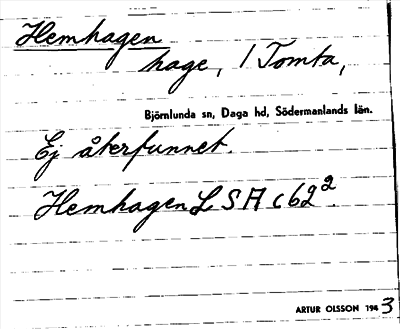 Hemhagen
hage, 1 Tomta,
Björnlunda sn, Daga hd, Södermanlands län.
Ej återfunnet.
Hemhagen L S A c 62²
ARTUR OLSSON 1943